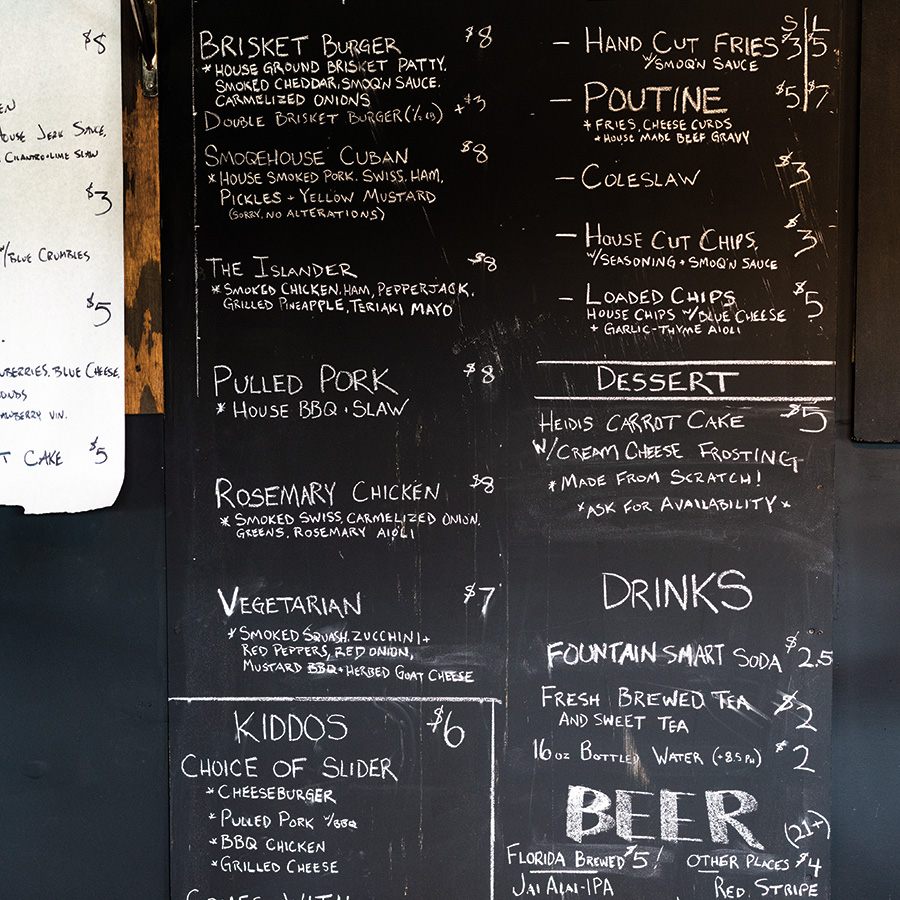 $8
House Jerk Sauce,
Cilantro+Lime Slaw
$3
w/Blue Crumbles
$5
Blue Cheese,
Vin.
Cake $5
Brisket Burger $8
*House Ground Brisket Patty,
Smoked Cheddar, Smoq'n Sauce,
Carmelized Onions
Double Brisket Burger (1/2 lb) +$3
Smoqehouse Cuban $8
*House Smoked Pork, Swiss, Ham,
Pickles + Yellow Mustard
(Sorry, No Alterations)
The Islander $8
*Smoked Chicken, Ham, Pepperjack,
Grilled Pineapple, Teriaki Mayo
Pulled Pork $8
*House BBQ + Slaw
Rosemary Chicken $8
*Smoked Swiss, Carmelized Onion,
Greens, Rosemary Aioli
Vegetarian $7
*Smoked Squash, Zucchini +
Red Peppers, Red Onion,
Mustard BBQ + Herbed Goat Cheese
Kiddos $6
Choice of Slider
*Cheeseburger
*Pulled Pork w/BBQ
*BBQ Chicken
*Grilled Cheese
Comes With
S L
– Hand Cut Fries $3 $5
w/Smoq'n Sauce
– Poutine $5 $7
+ Fries, Cheese Curds
+ House Made Beef Gravy
– Coleslaw $3
– House Cut Chips, $3
w/Seasoning + Smoq'n Sauce
– Loaded Chips $5
House Chips w/Blue Cheese
+ Garlic-Thyme Aioli
Dessert
Heidis Carrot Cake $5
w/Cream Cheese Frosting
*Made From Scratch!
*Ask for Availability*
Drinks
Fountain Smart Soda $2.5
Fresh Brewed Tea $2
and Sweet Tea
16oz Bottled Water (+8.5 PH) $2
BEER (21+)
Florida Brewed $5! Other Places $4
Jai Alai-IPA Red Stripe